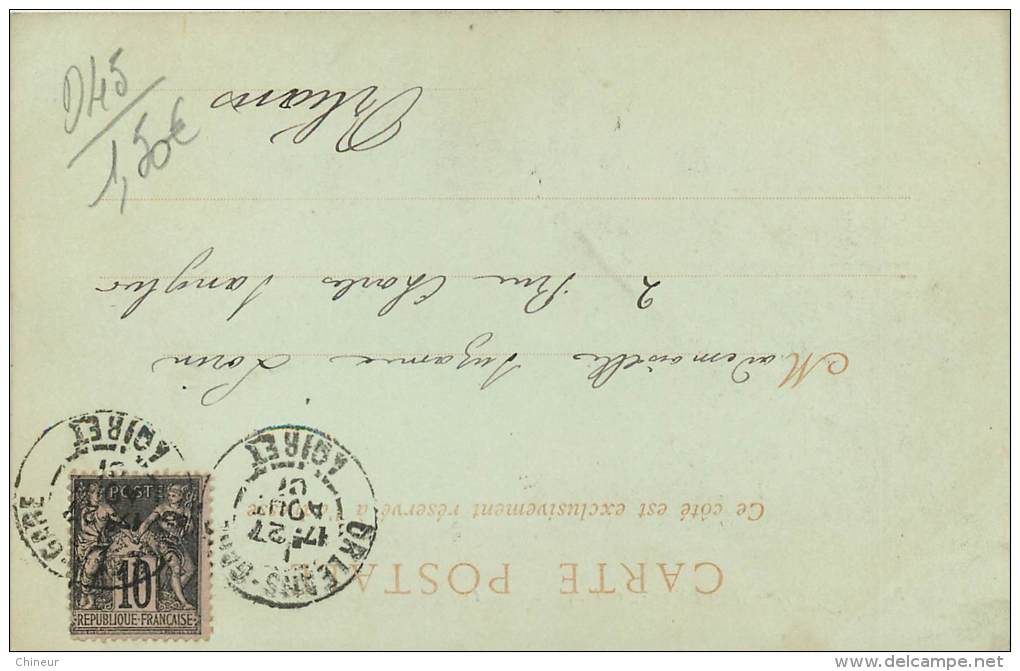 CARTE POSTALE
Ce côté est exclusivement réservé à
Mademoiselle Suzanne Lorin
2 Rue Charles Sanglier
Orléans
D45
1,50€
POSTE
10
REPUBLIQUE FRANÇAISE
ORLEANS-GARE
17 27
AOUT
01
LOIRET
GARE
LOIRET
01
Chineur
www.delcampe.net